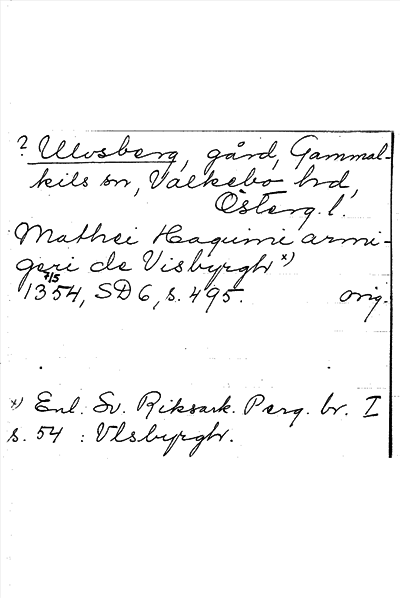 ? Ulvsberg, gård, Gammal-
kils sn, Valkebo hd,
Österg. l.
Mathei Haquini armi-
geri de Visbyrgh x)
7/5
1354, SD 6, s. 495. orig.
x) Enl. Sv. Riksark. Perg. br. I
s. 54 : Vlsbyrgh.